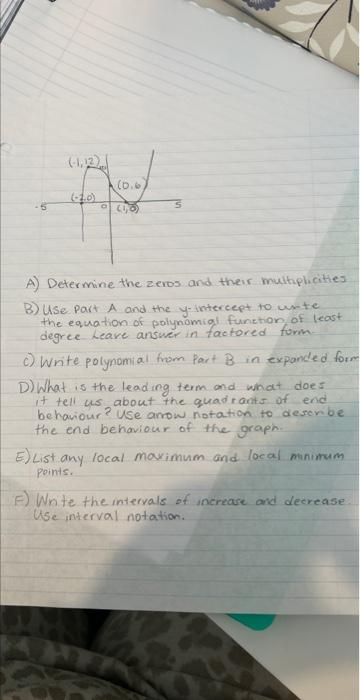 (-1,12)
(0,6)
(-2,0)
-5 0 (1,0) 5
A) Determine the zeros and their multiplicities
B) Use Part A and the y-intercept to write
the equation of polynomial function of least
degree. Leave answer in factored form.
C) Write polynomial from Part B in expanded form
D) What is the leading term and what does
it tell us about the quadrants of end
behaviour? Use arrow notation to describe
the end behaviour of the graph.
E) List any local maximum and local minimum
points.
F) Write the intervals of increase and decrease.
Use interval notation.